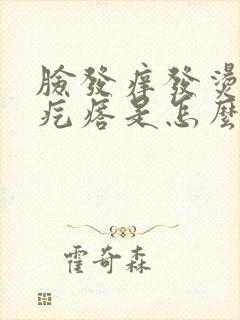 臉發痒發燙
疙瘩是怎麼
霍奇森